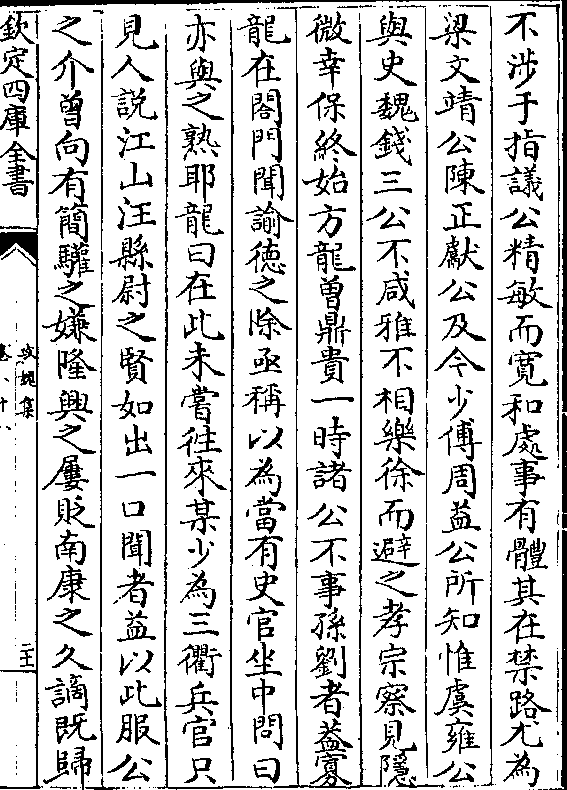 不涉于指議公精敏而寛和處事有體其在禁路尤為
梁文靖公陳正獻公及今少傅周益公所知惟虞雍公
與史魏錢三公不咸雅不相樂徐而避之孝宗察見隱
微幸保終始方龍曾鼎貴一時諸公不事孫劉者葢寡
龍在閤門聞諭德之除亟稱以為當有史官坐中問曰
亦與之熟耶龍曰在此未嘗往來某少為三衢兵官只
見人説江山汪縣尉之賢如出一口聞者益以此服公
之介曾向有簡驩之嫌隆興之屢貶南康之久謫既歸
欽定四庫全書
攻媿集
卷八十八
二十